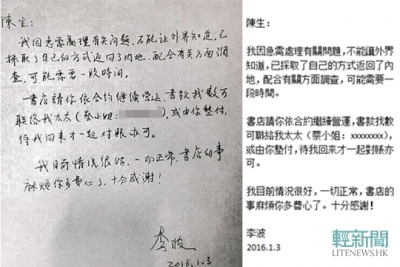 陳生：
我因急需處理有關問題，不能讓外界知道，已
採取了自己的方式返回了內地，配合有關方面調
查，可能需要一段時間。
書店請你依合約繼續營運，書款找數可
聯絡我太太（蔡小姐：
），或由你墊付，
待我回來才一起对賬亦可。
我目前情況很好，一切正常，書店的事
麻煩你多費心了，十分感謝！
李波
2016.1.3
陳生：
我因急需處理有關問題，不能讓外界
知道，已採取了自己的方式返回了內
地，配合有關方面調查，可能需要一
段時間。
書店請你依合約繼續營運，書款找數
可聯給我太太（蔡小姐：xxxxxxxx），
或由你墊付，待我回來才一起對賬亦
可。
我目前情況很好，一切正常，書店的
事麻煩你多費心了。十分感謝！
李波
2016.1.3
輕新聞
LITENEWS.HK